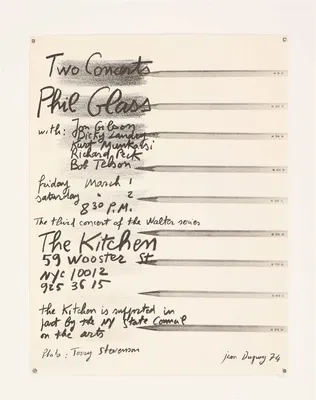 Two Concerts
Phil Glass
with: Jon Gibson
Dicky Landry
Kurt Munkacsi
Richard Peck
Bob Telson
friday March 1
saturday " 2
8:30 P.M.
The third concert of the Walter series
The Kitchen
59 Wooster St
NYC 10012
925 3615
the Kitchen is supported in
part by the NY State Council
on the arts
Photo: Tony Stevenson
Jean Dupuy 74